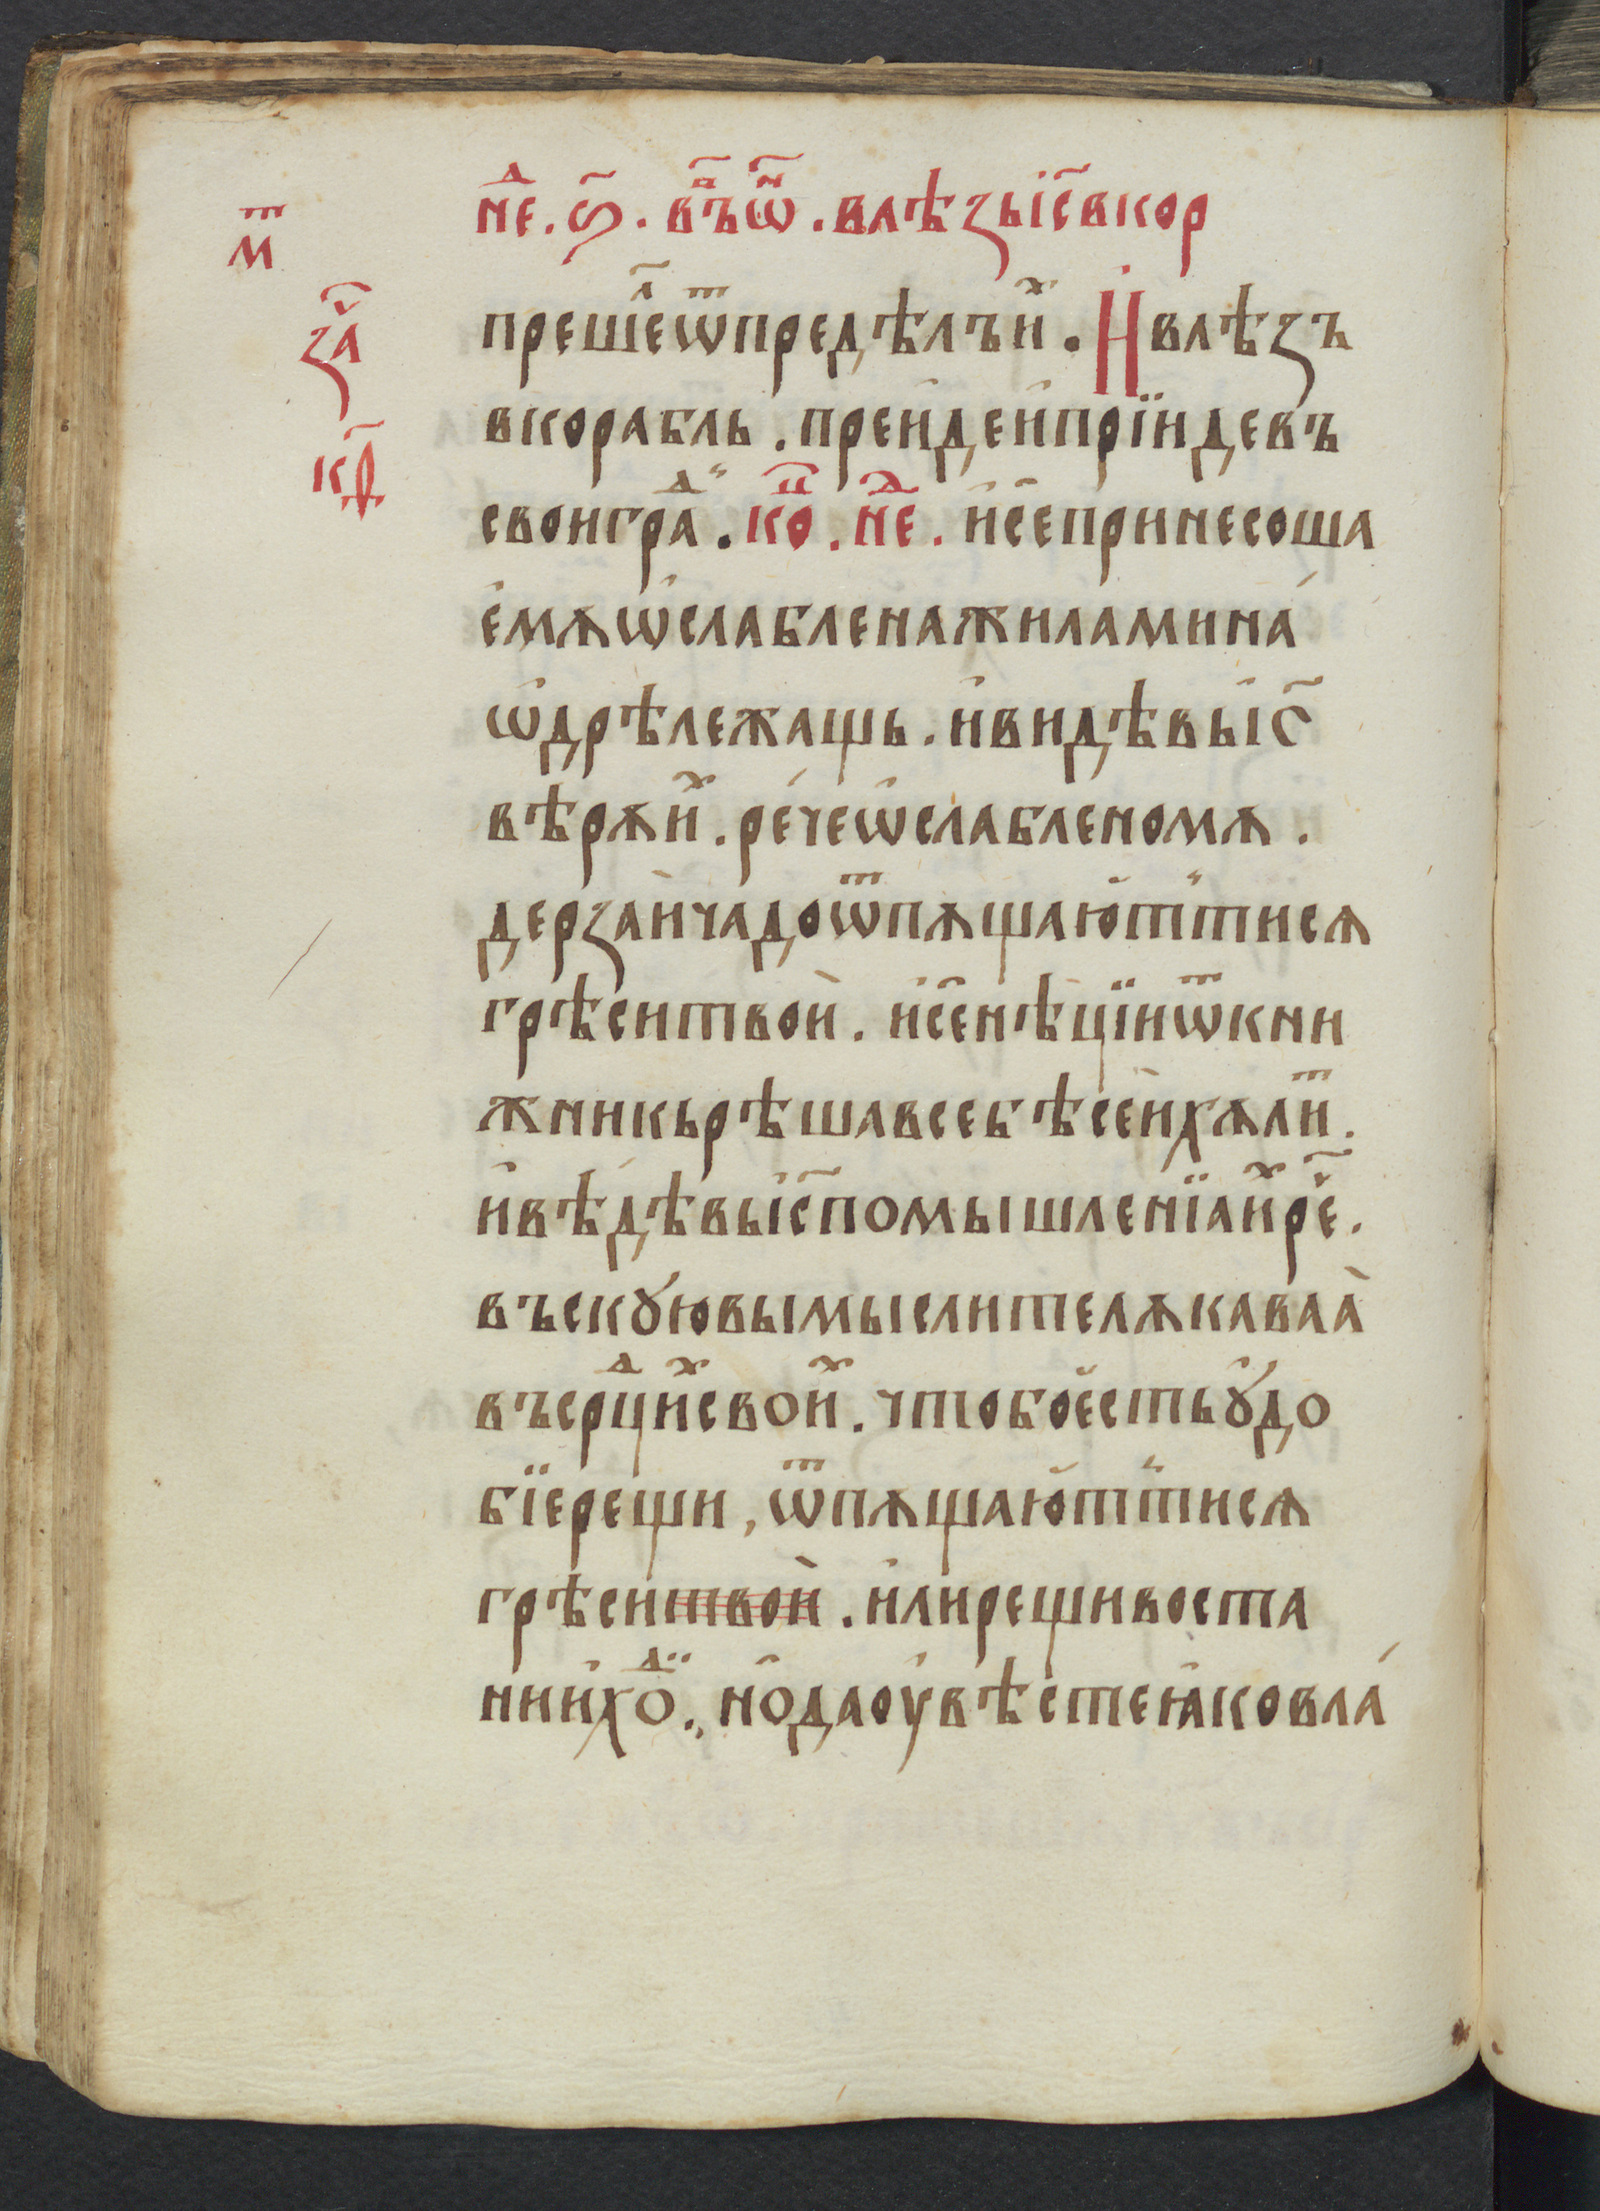 неⷣ. ѕ҃. въⷬ҇ ѡⷩ҇. влѣзъ і҃с в кор
мⷮ
за҃ⷱ
к҃ѳ
прешеⷧ҇ ѿ предѣлъ и́ⷯ. И влѣзъ
в корабль. преиде и҆ прїиде въ
свои граⷣ. коⷩ҇. неⷣ. и҆ се̑ принесоша
е҆мꙋ ѡ҆слаблена жилами на́
ѡ҆дрѣ лежащь. и҆ видѣвы і҃с
вѣрꙋ и҆ⷯ. ре́че ѡ҆слабленомꙋ.
дерзаѝ чадо ѿпꙋщаю҆тъ ти сѧ
грѣси твоѝ. и҆ се̑ нѣцїи ѿ кни
жникь рѣша в себѣ се́и хꙋлиⷮ.
и҆ вѣдѣвы і҃с помышленїа и҆ⷯ ре҃.
въскꙋю вы мыслите лꙋкаваа̀
въ срⷣци́ⷯ свои́ⷯ. что бо є҆сть ѹ҆до
бїе рещи, ѿпꙋщаю҆тъ ти сѧ
грѣси твоѝ. и҆ли рещи воста
ни и҆ хоⷣ., но̑ да оувѣсте ꙗ҆ко вла́